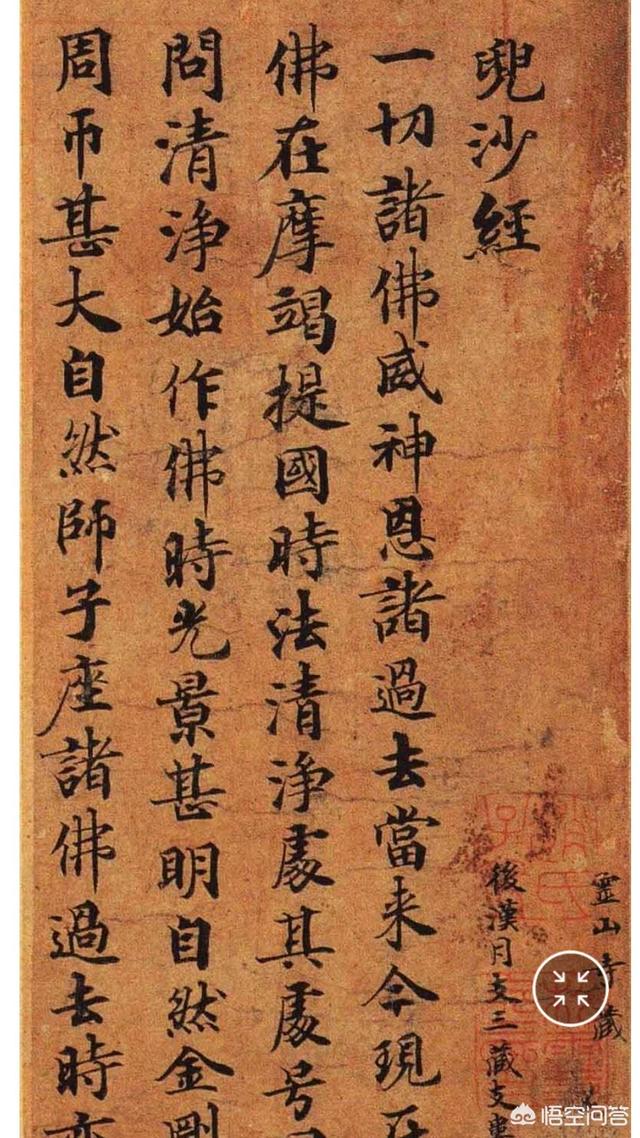 霊山寺藏
兜沙經
後漢月支三藏支婁
一切諸佛威神恩諸過去當来今現在
佛在摩竭提國時法清浄處其處号
問清浄始作佛時光景甚明自然金剛
周帀甚大自然師子座諸佛過去時亦
悟空问答